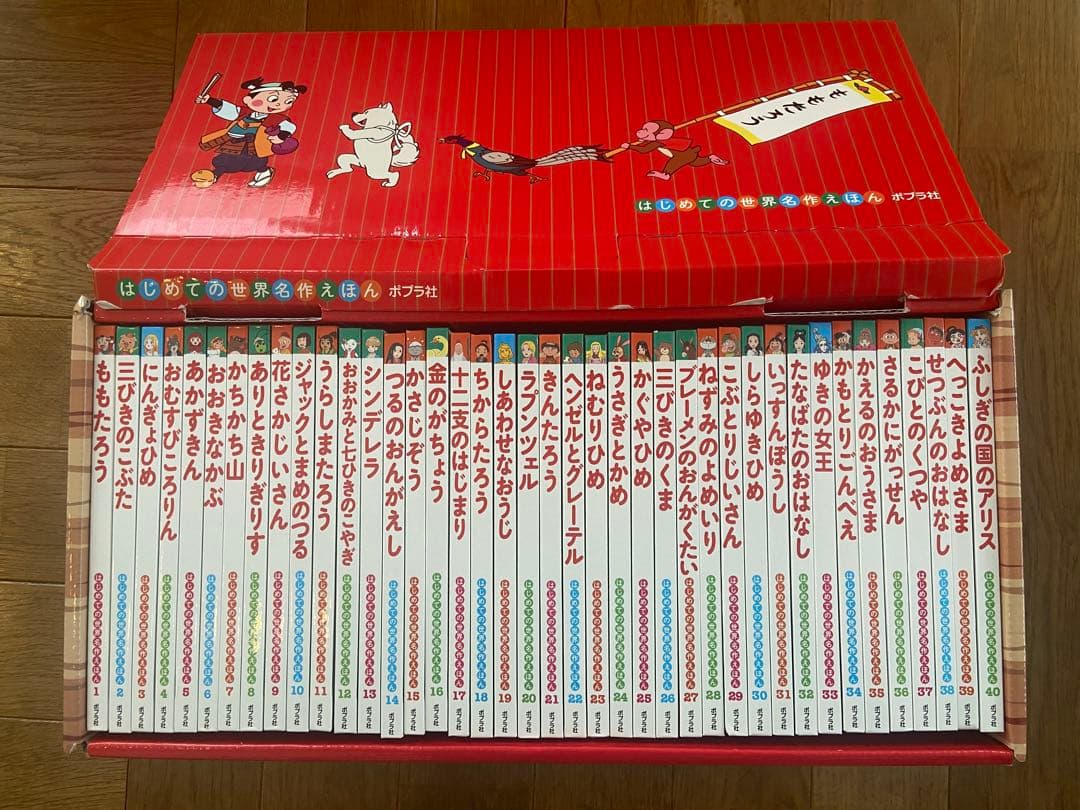 ももたろう
はじめての世界名作えほん ポプラ社
はじめての世界名作えほん ポプラ社
ももたろう はじめての世界名作えほん 1 ポプラ社
三びきのこぶた はじめての世界名作えほん 2 ポプラ社
にんぎょひめ はじめての世界名作えほん 3 ポプラ社
おむすびころりん はじめての世界名作えほん 4 ポプラ社
あかずきん はじめての世界名作えほん 5 ポプラ社
おおきなかぶ はじめての世界名作えほん 6 ポプラ社
かちかち山 はじめての世界名作えほん 7 ポプラ社
ありときりぎりす はじめての世界名作えほん 8 ポプラ社
花さかじいさん はじめての世界名作えほん 9 ポプラ社
ジャックとまめのつる はじめての世界名作えほん 10 ポプラ社
うらしまたろう はじめての世界名作えほん 11 ポプラ社
おおかみと七ひきのこやぎ はじめての世界名作えほん 12 ポプラ社
シンデレラ はじめての世界名作えほん 13 ポプラ社
つるのおんがえし はじめての世界名作えほん 14 ポプラ社
かさじぞう はじめての世界名作えほん 15 ポプラ社
金のがちょう はじめての世界名作えほん 16 ポプラ社
十二支のはじまり はじめての世界名作えほん 17 ポプラ社
ちからたろう はじめての世界名作えほん 18 ポプラ社
しあわせなおうじ はじめての世界名作えほん 19 ポプラ社
ラプンツェル はじめての世界名作えほん 20 ポプラ社
きんたろう はじめての世界名作えほん 21 ポプラ社
ヘンゼルとグレーテル はじめての世界名作えほん 22 ポプラ社
ねむりひめ はじめての世界名作えほん 23 ポプラ社
うさぎとかめ はじめての世界名作えほん 24 ポプラ社
かぐやひめ はじめての世界名作えほん 25 ポプラ社
三びきのくま はじめての世界名作えほん 26 ポプラ社
ブレーメンのおんがくたい はじめての世界名作えほん 27 ポプラ社
ねずみのよめいり はじめての世界名作えほん 28 ポプラ社
こぶとりじいさん はじめての世界名作えほん 29 ポプラ社
しらゆきひめ はじめての世界名作えほん 30 ポプラ社
いっすんぼうし はじめての世界名作えほん 31 ポプラ社
たなばたのおはなし はじめての世界名作えほん 32 ポプラ社
ゆきの女王 はじめての世界名作えほん 33 ポプラ社
かもとりごんべえ はじめての世界名作えほん 34 ポプラ社
かえるのおうさま はじめての世界名作えほん 35 ポプラ社
さるかにがっせん はじめての世界名作えほん 36 ポプラ社
こびとのくつや はじめての世界名作えほん 37 ポプラ社
せつぶんのおはなし はじめての世界名作えほん 38 ポプラ社
へっこきよめさま はじめての世界名作えほん 39 ポプラ社
ふしぎの国のアリス はじめての世界名作えほん 40 ポプラ社